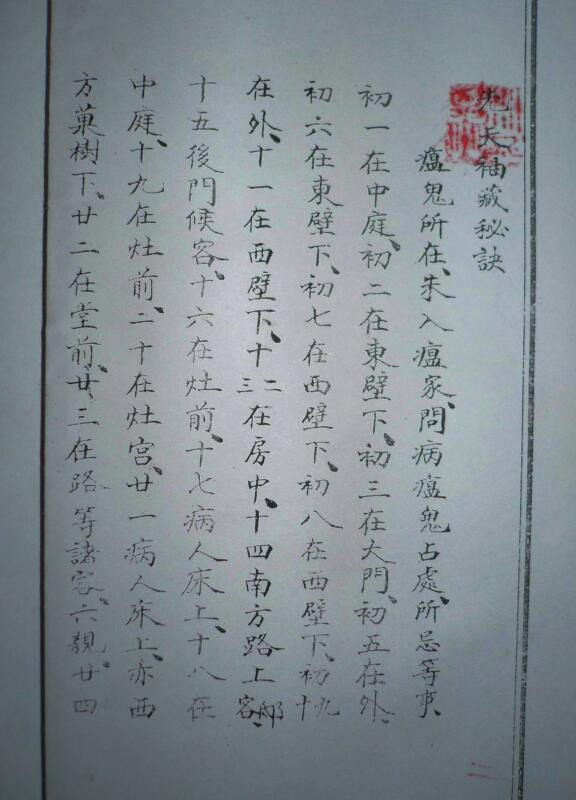 先天袖藏秘訣
瘟鬼所在、朱入瘟家、問病瘟鬼占處、所忌等事、
初一在中庭、初二在東壁下、初三在大門、初五在外、
初六在東壁下、初七在西壁下、初八在西壁下、初九十
在外、十一在西壁下、十二三在房中、十四南方路上邸客、
十五後門候客、十六在灶前、十七病人床上、十八在
中庭、十九在灶前、二十在灶宫、廿一病人床上、亦西
方菓樹下、廿二在堂前、廿三在路等諸客、六親、廿四